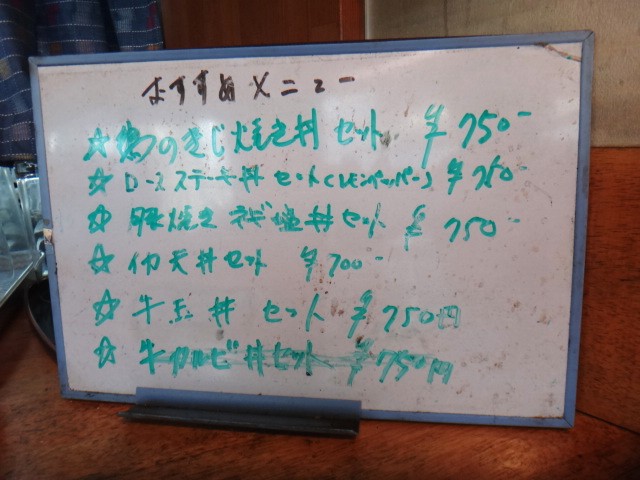 おすすめメニュー
☆鶏のきじ焼き丼 セット ¥750-
☆ロースステーキ丼 セット(レモンペッパー) ¥750-
☆豚焼き ネギ塩丼セット ¥750-
☆イカ天丼セット ¥700-
☆牛玉丼 セット ¥750円
☆牛カルビ丼セット ¥750円